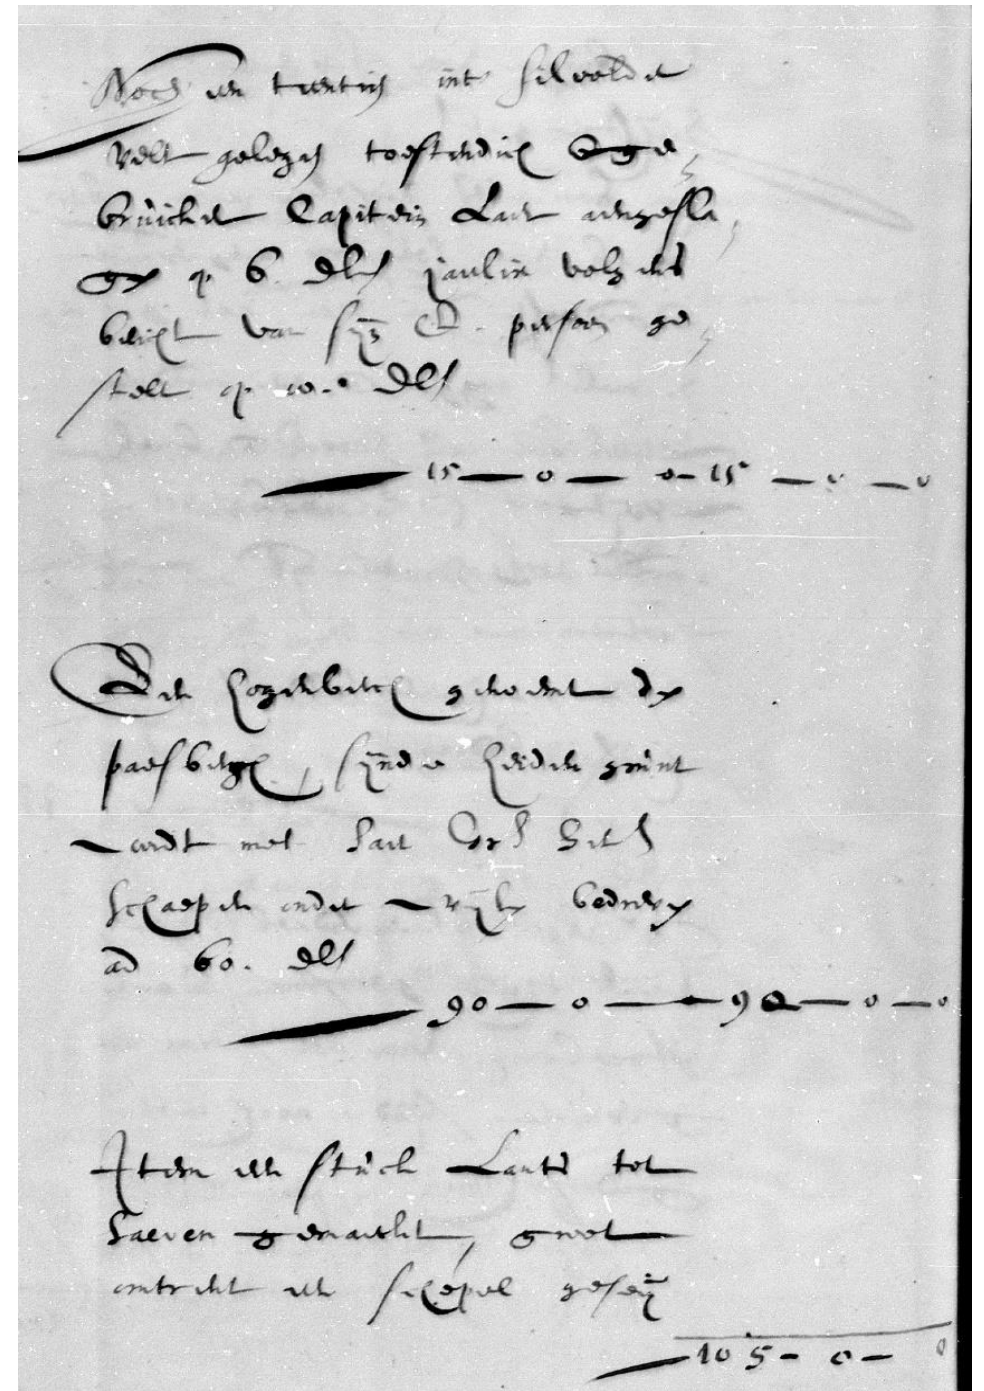 Noch een twentich int silvolder
velt gelegen toestendich &
bruicker Capitein Laer aengesla
gen op 6. dlrs jaerlix volgens
bericht van sijn E. persoon ge
stelt op 10. dlr
15 — 0 — 0 — 15 — 0 — 0
Den hogenberch genoemt den
paesberch, sijnde heiden grunt
wordt met
schaepen onder bedreven
ad 60. dlr
90 — 0 — 90 — 0 — 0
Item een stuck Lants tot
haeven gemaeckt, groot
omtrent een schepel gesey
105 — 0 — 0